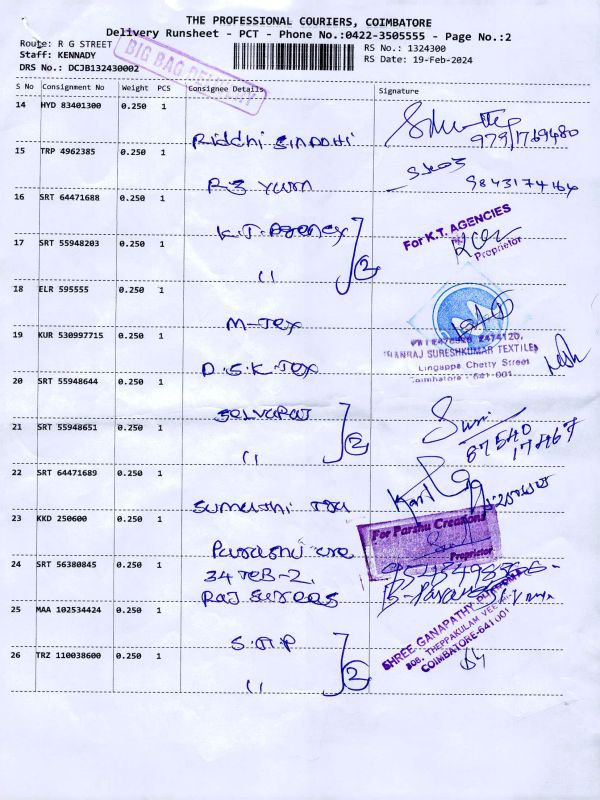 THE PROFESSIONAL COURIERS, COIMBATORE
Delivery Runsheet - PCT - Phone No.:0422-3505555 - Page No.:2
Route: R G STREET
RS No.: 1324300
Staff: KENNADY
RS Date: 19-Feb-2024
DRS No.: DCJB132430002
BIG BAG DELIVERY
S No Consignment No Weight PCS Consignee Details Signature
14 HYD 83401300 0.250 1
Riddhi Siddhi
15 TRP 4962385 0.250 1
R3 Yurn
9843174164
16 SRT 64471688 0.250 1
K.T. Agency
For K.T. AGENCIES
Proprietor
17 SRT 55948203 0.250 1
11
2
18 ELR 595555 0.250 1
M-Tex
19 KUR 530997715 0.250 1
2474120,
SURESHKUMAR TEXTILES
Lingappa Chetty Street
Coimbatore - 641 001
D.S.K-Tex
20 SRT 55948644 0.250 1
Selvaraj
21 SRT 55948651 0.250 1
87540
17467
11
2
22 SRT 64471689 0.250 1
Sumathi
23 KKD 250600 0.250 1
For Parshu Creations
Proprietor
24 SRT 56380845 0.250 1
34 JEB-2,
25 MAA 102534424 0.250 1
SHREE GANAPATHY
THEPPAKULAM
COIMBATORE-641 001
26 TRZ 110038600 0.250 1
11
2